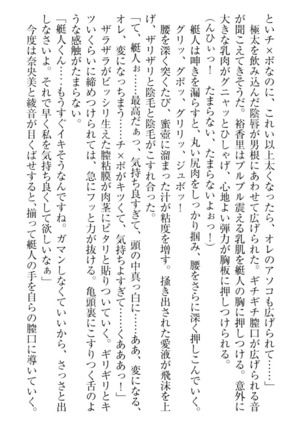 といチ×ボなのに、これ以上太くなったら、オレのアソコも広げられて……」
極太を飲み込んだ陰唇が男根にあわせて広げられた。ギチギチ膣口が広げられる音
(んひいっ！　たまらない、たまらないよぉっ！)
が聞こえてくるようだ。裕香里はブルブル震える乳肌を艇人の胸に押しつける。意外に
大きな乳肉がグニャッとひしゃげ、心地よい弾力が胸板に押しつけられる。
グリッ、グボッ、グリリッ、ジュボッ！
艇人は呻きを漏らすと、丸い尻肉をしっかり掴み、腰をさらに深く押しこんでいく。
腰を深く突くたび、蜜壺に溜まった汁が粘度を増す。掻き出された愛液が飛沫を上
げ、ザリザリと陰毛と陰毛がこすれ合った。
「て、艇人ぉ……最高だぁっ、気持ち良すぎて、頭の中真っ白に……ああ、変になる、
オレ、変になっちまう……チ×ボがキツくて、気持ちよすぎて……くああああっ！」
ザラザラがビッシリ生えた膣粘膜が肉茎にピタリと貼りついていく。ギリギリとキ
ツいくらいに締めつけられては、急にフッと力が抜ける。亀頭裏にこすりつく舌のよ
うな感触がたまらない。
「艇人くん……もうすぐイキそうなんですね。ガマンしなくていいから、さっさと出
しなさいよ。それで早く私を気持ち良くして欲しいなぁ」
今度は奈央美と綾音が目くばせすると、揃って艇人の手を自らの膣口に導いていく。